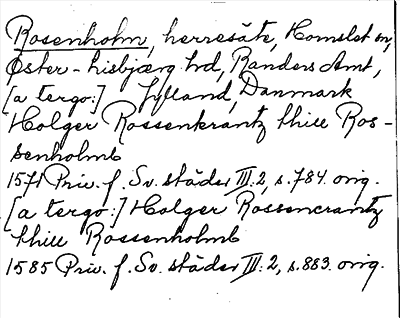 Rosenholm, herresäte, Homslet sn,
Øster-Lisbjærg hrd, Randers Amt,
[a tergo:] Jylland, Danmark
Holger Rossenkrantz thill Ros-
senholmb
1571 Priv. f. Sv. städer III:2, s. 784. orig.
[a tergo:] Holger Rossencrantz
thill Rossenholmb
1585 Priv. f. Sv. städer III:2, s. 883. orig.